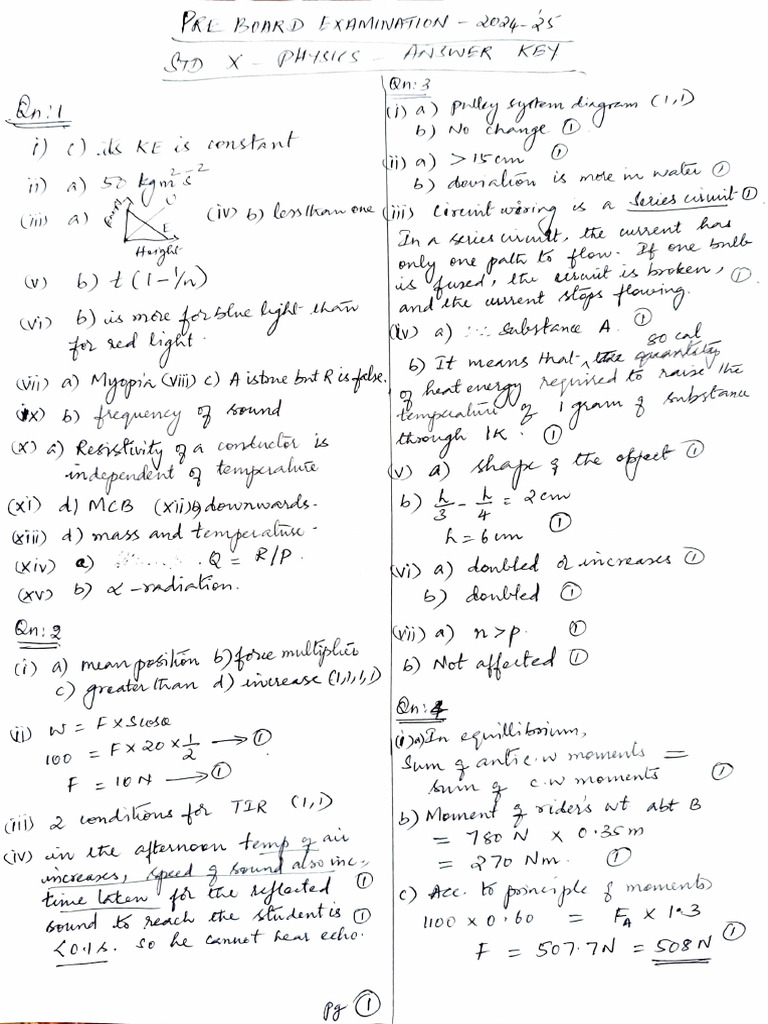 PRE BOARD EXAMINATION - 2024-25
STD X - PHYSICS - ANSWER KEY
Qn: 1
i) c) its KE is constant
ii) a) 50 kgm² s⁻²
(iii) a) E Height (iv) b) less than one
(v) b) t (1 - 1/n)
(vi) b) is more for blue light than
for red light.
(vii) a) Myopia (viii) c) A is true but R is false.
(ix) b) frequency of sound
(x) a) Resistivity of a conductor is
independent of temperature
(xi) d) MCB (xii) downwards.
(xiii) d) mass and temperature.
(xiv) a) Q = R/P.
(xv) b) α-radiation.
Qn: 2
(i) a) mean position b) force multiplier
c) greater than d) increase (1,1,1,1)
(ii) W = F x S cosθ
100 = F x 20 x 1/2 → ①
F = 10 N → ①
(iii) 2 conditions for TIR (1,1)
(iv) in the afternoon temp of air
increases, speed of sound also inc,
time taken for the reflected ①
sound to reach the student is ①
<0.1s. so he cannot hear echo.
Qn: 3
(i) a) pulley system diagram (1,1)
b) No change ①
(ii) a) > 15cm ①
b) deviation is more in water ①
(iii) Circuit wiring is a Series circuit ①.
In a series circuit, the current has
only one path to flow. If one bulb
is fused, the circuit is broken, ①
and the current stops flowing.
(iv) a) substance A. ①
b) It means that 80 cal
of heat energy required to raise the
temperature of 1 gram of substance
through 1K. ①
(v) a) shape of the object ①
b) h/3 - h/4 = 2cm
h = 6cm ①
(vi) a) doubled or increases ①
b) doubled ①
(vii) a) n > p. ①
b) Not affected ①
Qn: 4
(i) a) In equillibrium,
Sum of antic.w moments =
sum of c.w moments ①
b) Moment of rider's wt abt B
= 780 N x 0.35m
= 270 Nm. ①
c) Acc. to principle of moments
1100 x 0.60 = F_A x 1.3
F = 507.7N = 508N ①
Pg ①